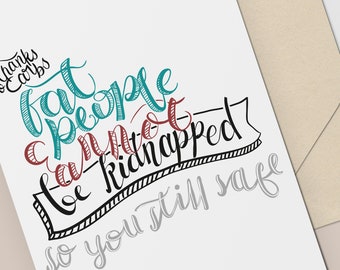 thanks
carbs
fat
people
cannot
be kidnapped
so you still safe